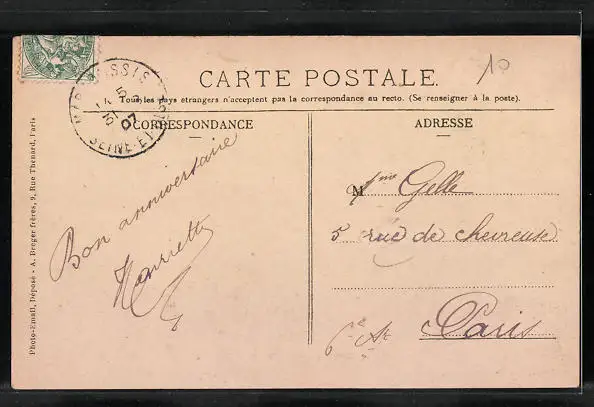 10
CARTE POSTALE.
Tous les pays étrangers n'acceptent pas la correspondance au recto. (Se renseigner à la poste).
CORRESPONDANCE
ADRESSE
SEINE-ET-
07
Bon anniversaire
Henriette
Mme Gelle
5 rue de chevreuse
6e At
Paris
Photo-Email, Déposé - A. Breger frères, 9, Rue Thénard, Paris